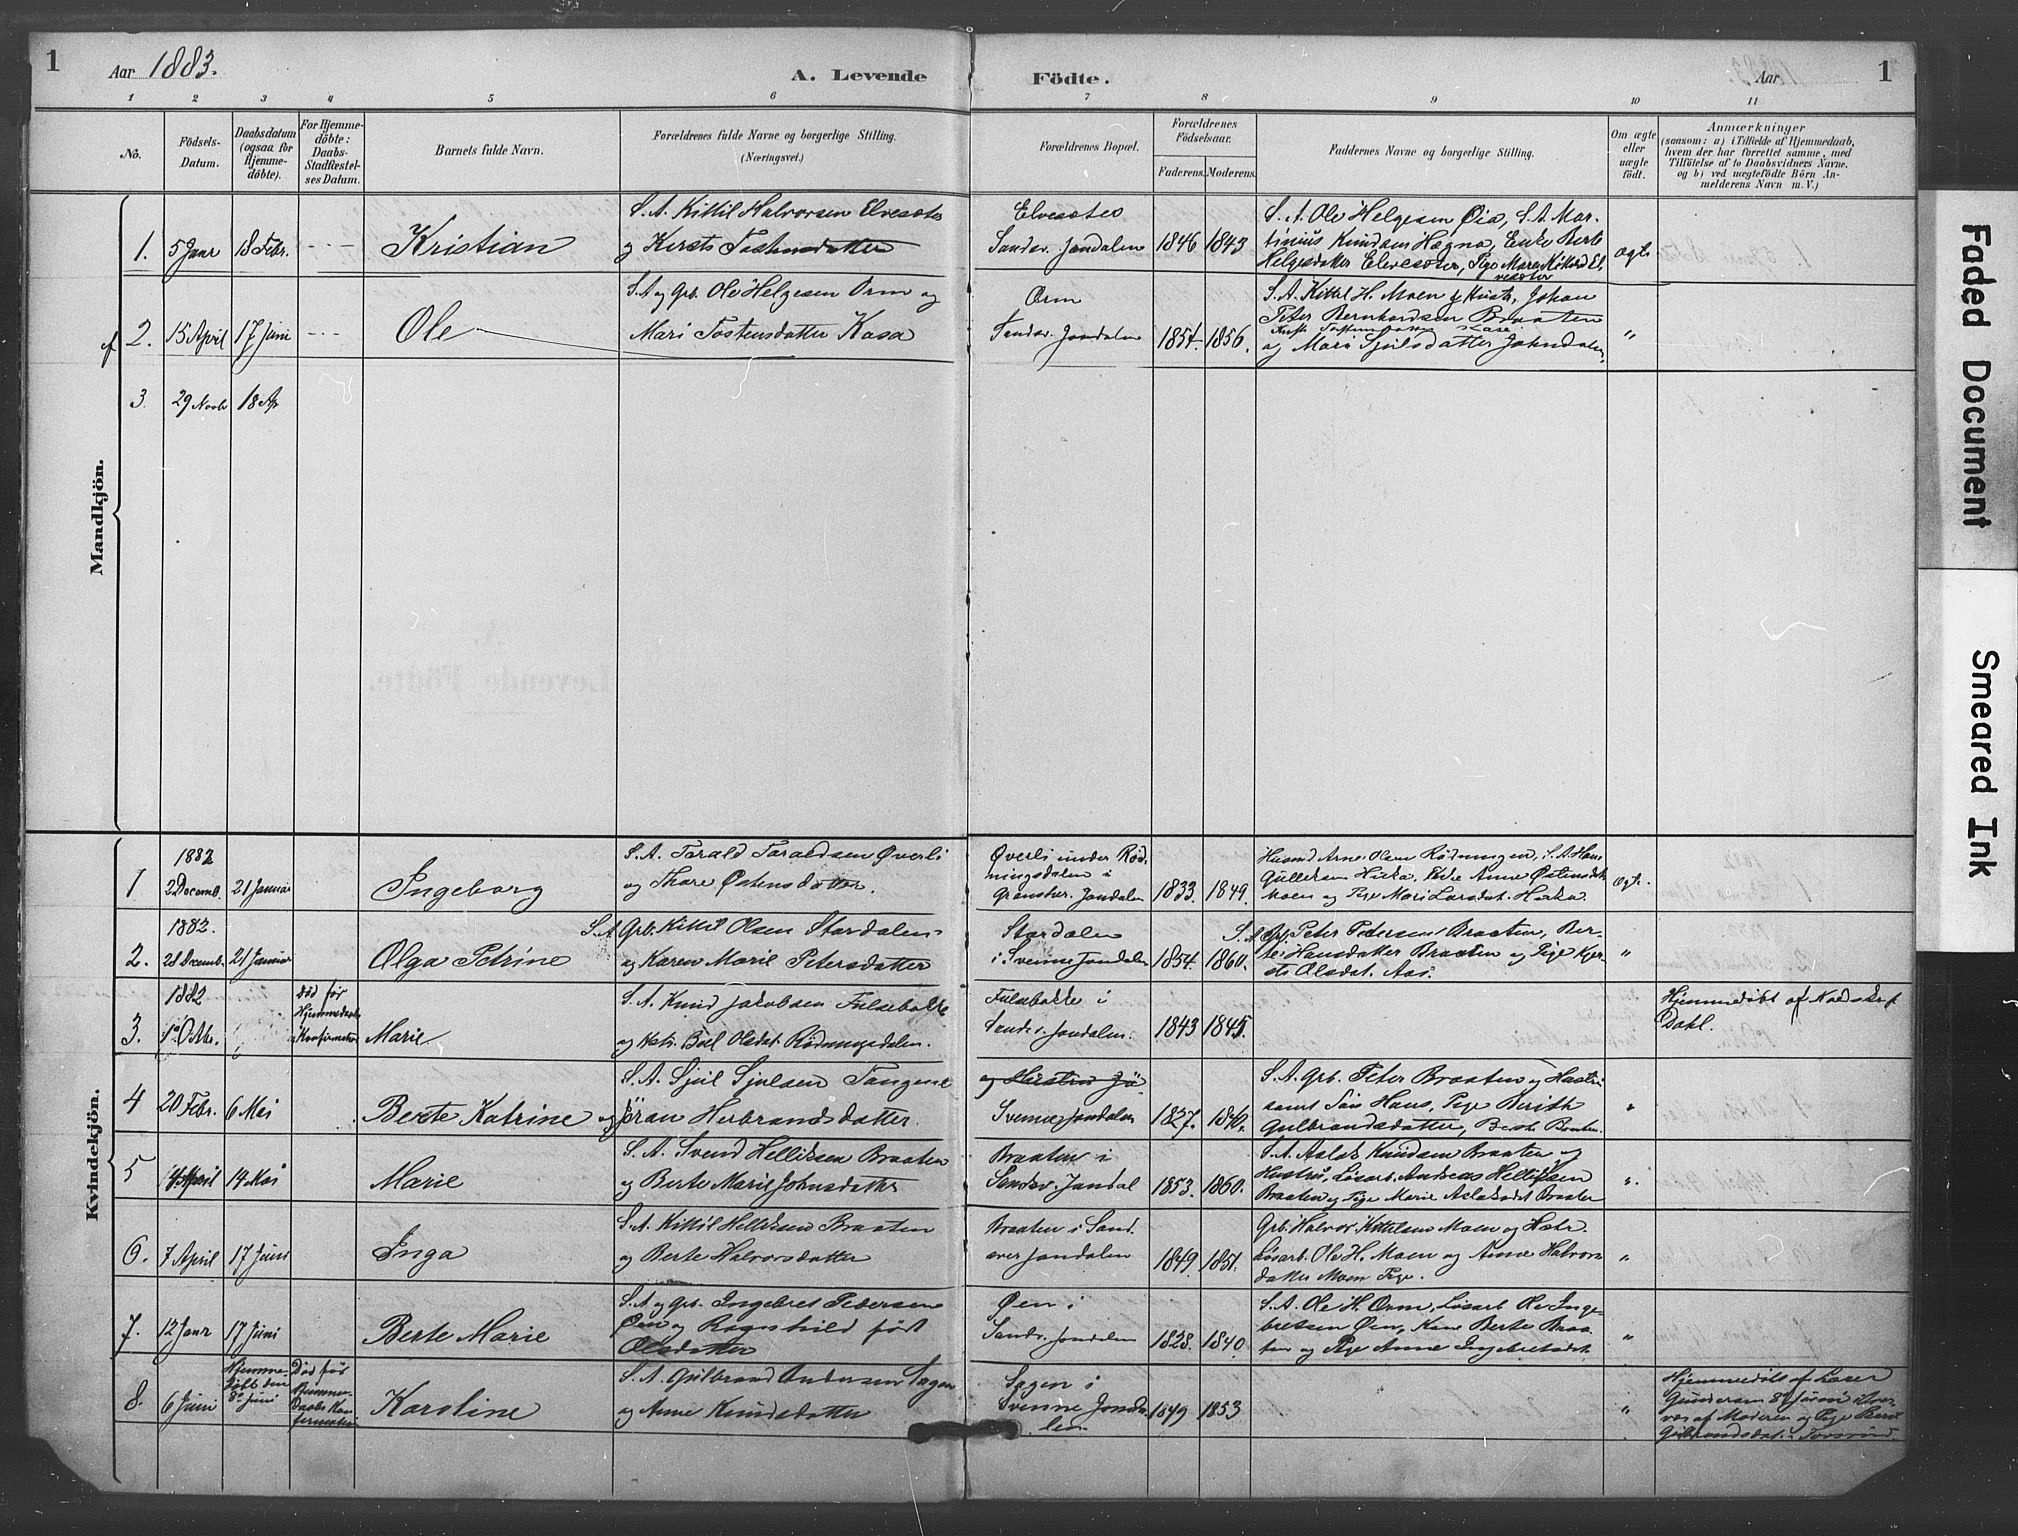 1
Aar 1883.
A. Levende Födte.
Aar
1
1 2 3 4 5 6 7 8 9 10 11
No.
Födsels-
Datum.
Daabsdatum
(ogsaa for
Hjemme-
döbte).
For Hjemme-
döbte:
Daabs-
Stadfæstel-
ses Datum.
Barnets fulde Navn.
Forældrenes fulde Navne og borgerlige Stilling.
(Næringsvei.)
Forældrenes Bopæl.
Forældrenes
Födselsaar.
Faderens. Moderens.
Faddernes Navne og borgerlige Stilling.
Om ægte
eller
uægte
födt.
Anmærkninger
(saasom: a) i Tilfælde af Hjemmedaab,
hvem der har forrettet samme, med
Tilföielse af to Daabsvidners Navne.
og b) ved uægtefödte Börn An-
melderens Navn m. V.)
Mandkjön.
1. 5 Janr 18 Febr. Kristian
S. A. Kittil Halvorsen Elvesæter
og Kersti Tostensdatter
Elvesæter
Sandsv. Jondalen 1846 1843
S. A. Ole Helgesen Øia, S. A. Mar-
tinius Knudsen Hægna, Enke Berte
Helgesdatter Elvesæter, Pige Maren
vesæter
ægte
2. 15 April 17 Juni Ole
S. A. og Grb. Ole Helgesen Orm og
Mari Tostensdatter Kasa
Orm
Sandsv. Jondalen 1854. 1856.
S. A. Kittil H. Moen & Hustr, Johan
Peter Bernhardsen Braaten
og Mari Sjulsdatter Johndalen
"
3. 29 Novbr 18 Ap
Kvindekjön.
1 1882
2 Decemb. 21 Januar Ingeborg
S. A. Tarald Taraldsen Øverli
og Thore Østensdatter.
Øverli under Rød-
ningsdalen i
Gransher. Jondalen 1833. 1849.
Husmd Arne Olsen Rødningen, S. A. Hans
Gulliksen Hirka, Pike Anne Østensdt
moen og Pige Mari Larsdat. Hirka.
Ægte.
2. 1882.
28 Decemb. 21 Januar Olga Petrine
S. A. Grb. Kittil Olsen Stordalen
og Karen Marie Petersdatter
Stordalen
i Svenne Jondalen 1854. 1860.
S. A. Grb. Peter Petersens Braaten, Ber-
te Hansdatter Braaten og Pige Kjer-
sti Olsdat. Aas.
"
3. 1882
1ª Octbr.
Død før
Hjemmedaabs
Konfirmation Marie
S. A. Knud Jakobsen Fulsebakke
og Hstr. Boel Olsdat. Rødningsdalen.
Fulsebakke i
Sandsv. Jondalen. 1843 1845.
Hjemmedøbt af
Dahl.
4 20 Febr. 6 Mai Berte Katrine
S. A. Sjul Sjulsen Tangene
og Jøran Herbrandsdatter.
Svenne Jondalen 1827. 1840.
S. A. Grb. Peter Braaten og Hustru
samt Søn Hans, Pige Berith
Gulbrandsdatter, Berthe Braaten.
"
5 14 April 14 Mai Marie
S. A. Svend Helliksen Braaten
og Berte Marie Johnsdatter
Braaten i
Sandsv. Jondal 1853. 1860.
S. A. Aslak Knudsen Braaten og
Hustru, Løsarb. Andreas Helliksen
Braaten og Pige Marie Aslaksdt Braaten
"
6. 7 April 17 Juni Inga
S. A. Kittil Helliksen Braaten
og Berte Halvorsdatter
Braaten i Sand.
sver Jondalen 1849. 1851.
Grb. Halvor Kittilsen Moen og Hstr.
Løsarb. Ole H. Moen og Anne Halvors
datter Moen Pige.
"
7. 12 Janr 17 Juni Berte Marie
S. A. og Grb. Ingebret Pedersen
Øen og Ragnhild født
Olsdatter
Øen i
Sandsv. Jondalen 1828. 1840.
S. A. Ole H. Orm, Løsarb Ole Inge-
bretsen Øen, Kone Berte Braa-
ten og Pige Anne Ingebretsdt.
"
8. 6 Juni Hjemme-
døbt den
8de Juni
Død før
Hjemme-
Daabs Kon
firmation Karoline
S. A. Gulbrand Andersen Sagen
og Anne Knudsdatter
Sagen i
Svenne Jonda-
len 1849 1853
"
Hjemmedøbt af Lærer
Gundersen 8de Juni i Nær-
vær af Moderen og Pige Berit
Gulbrandsdat.
Faded Document
Smeared Ink